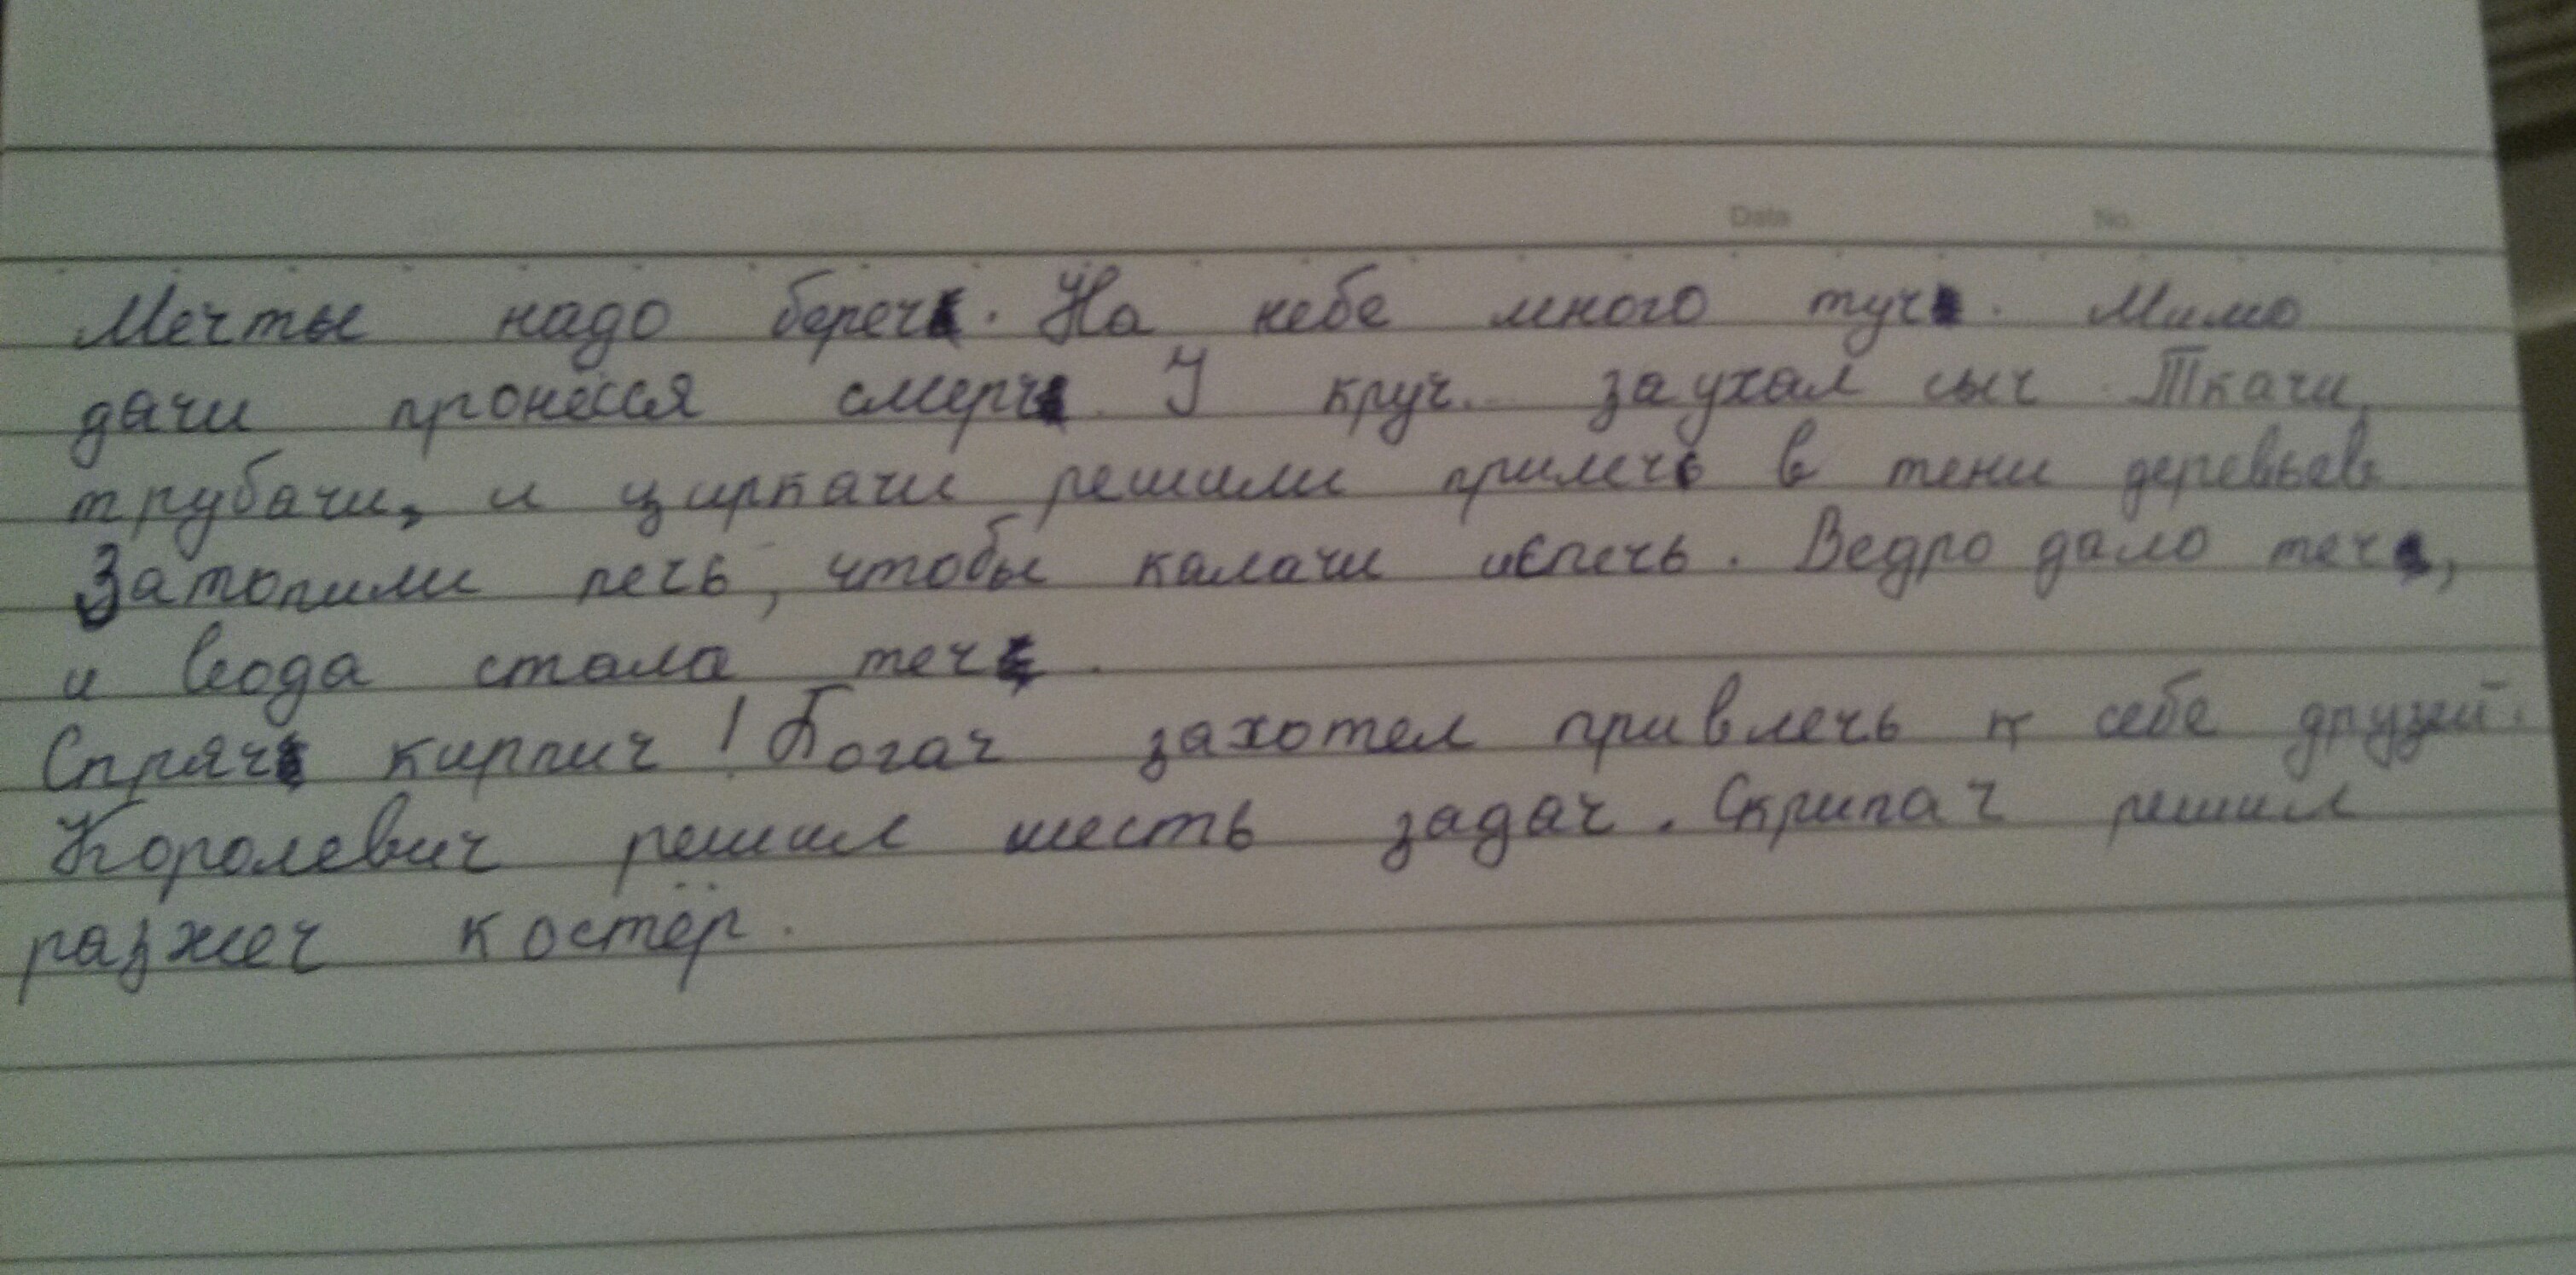 Date No.
Мечты надо береч. На небе много туч. Мимо
дачи пронёсся смерч. У круч. заухал сыч. Ткачи,
трубачи, и циркачи решили прилечь в тени деревьев.
Затопили печь, чтобы калачи испечь. Ведро дало теч,
и вода стала теч.
Спряч кирпич! Богач захотел привлечь к себе друзей.
Королевич решил шесть задач. Скрипач решил
разжеч костёр.